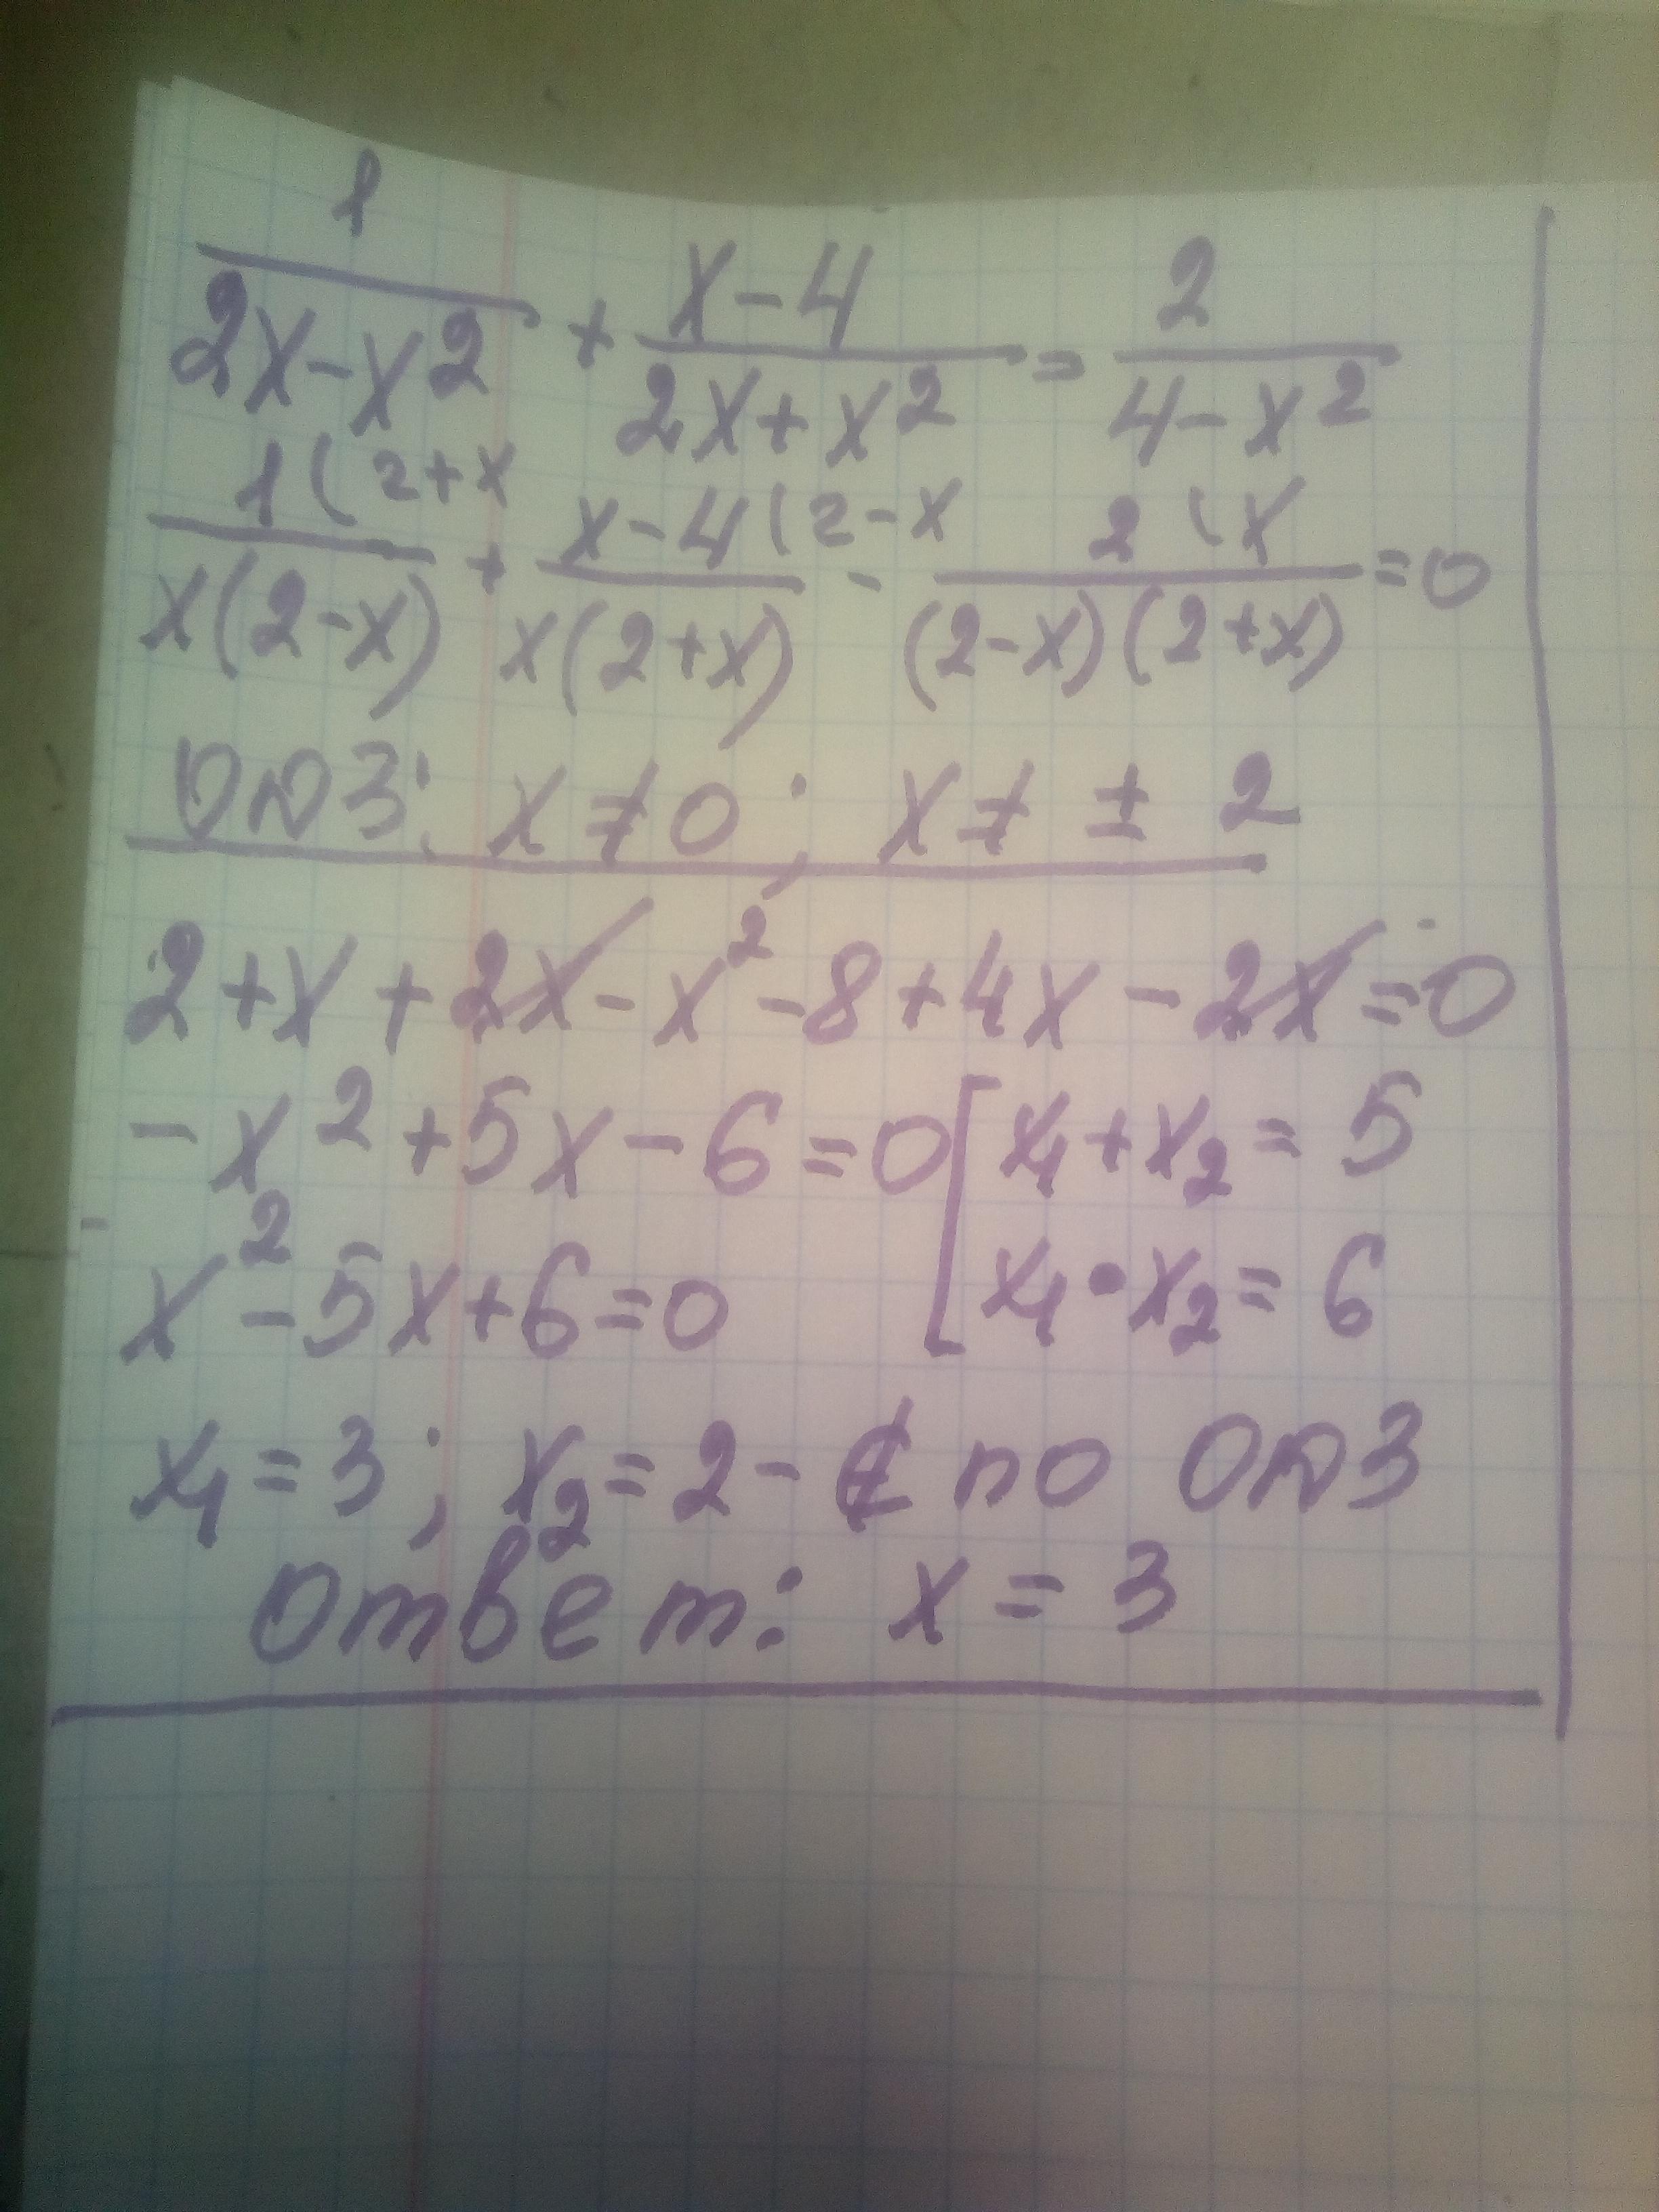 1/(2x-x²) + (x-4)/(2x+x²) = 2/(4-x²)
1(2+x/(x(2-x)) + x-4(2-x/(x(2+x)) - 2(x/((2-x)(2+x)) = 0
ОДЗ: x≠0; x≠ ± 2
2+x+2x-x²-8+4x-2x=0
-x²+5x-6=0 [x₁+x₂=5
x²-5x+6=0 x₁•x₂=6
x₁=3; x₂=2-∉ по ОДЗ
Ответ: x=3